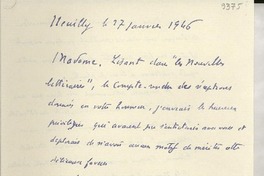 9375
Neuilly le 17 Janvier 1946
Madame, Lisant dans "les Nouvelles
littéraires", le Compte-rendu des réceptions
données en votre honneur, j'enviais les heureux
privilégiés qui avaient pu s'entretenir avec vous et
déplorais de n'avoir aucun motif de mériter cette